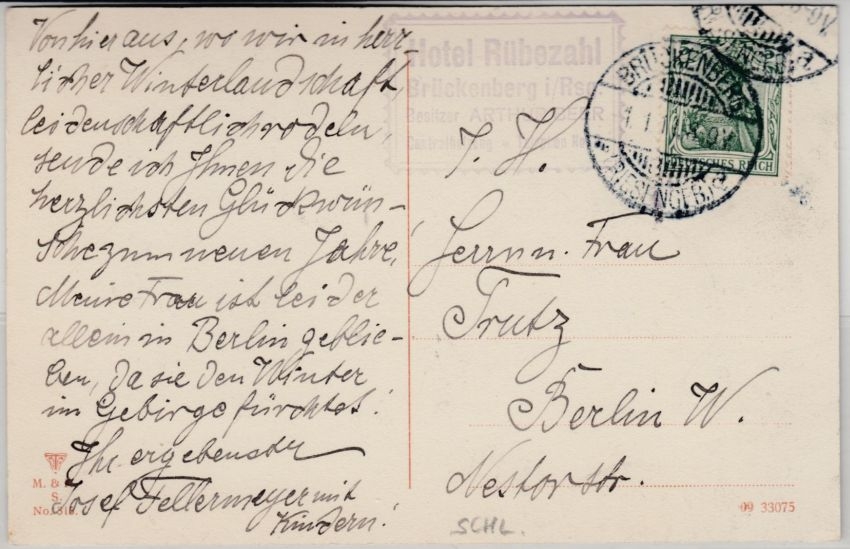 Von hier aus, wo wir in herr-
licher Winterlandschaft
leidenschaftlich rodeln,
sende ich Ihnen die
herzlichsten Glückwün-
sche zum neuen Jahre!
Meine Frau ist leider
allein in Berlin geblie-
ben, da sie den Winter
im Gebirge fürchtet!
Ihr ergebenster
Josef Fellermeyer mit
Kindern!
M. &
S.
No.
Hotel Rübezahl
Brückenberg i/Rsg.
Besitzer ARTHUR
BRÜCKENBERG
1.1.
(RIESENGEB.)
a
DEUTSCHES REICH
T. H.
Herrn u. Frau
Trutz
Berlin W.
Nestorstr.
SCHL.
09 33075